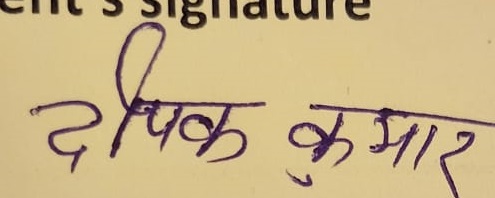 ent's signature
दीपक कुमार